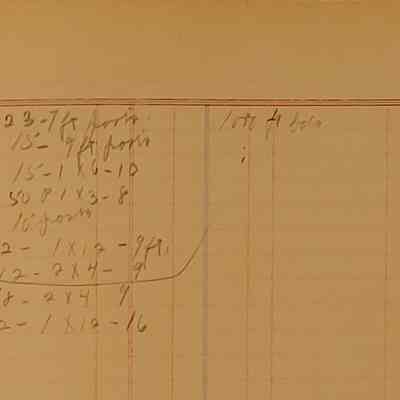 23-7 ft posts
15- 9 ft posts
15-1 X 6-10
50 1 X 3-8
10 posts
2- 1 X 12 - 9 ft.
12 - 2 X 4 - 9
8 - 2 X 4 9
2 - 1 X 12 - 16
100 ft